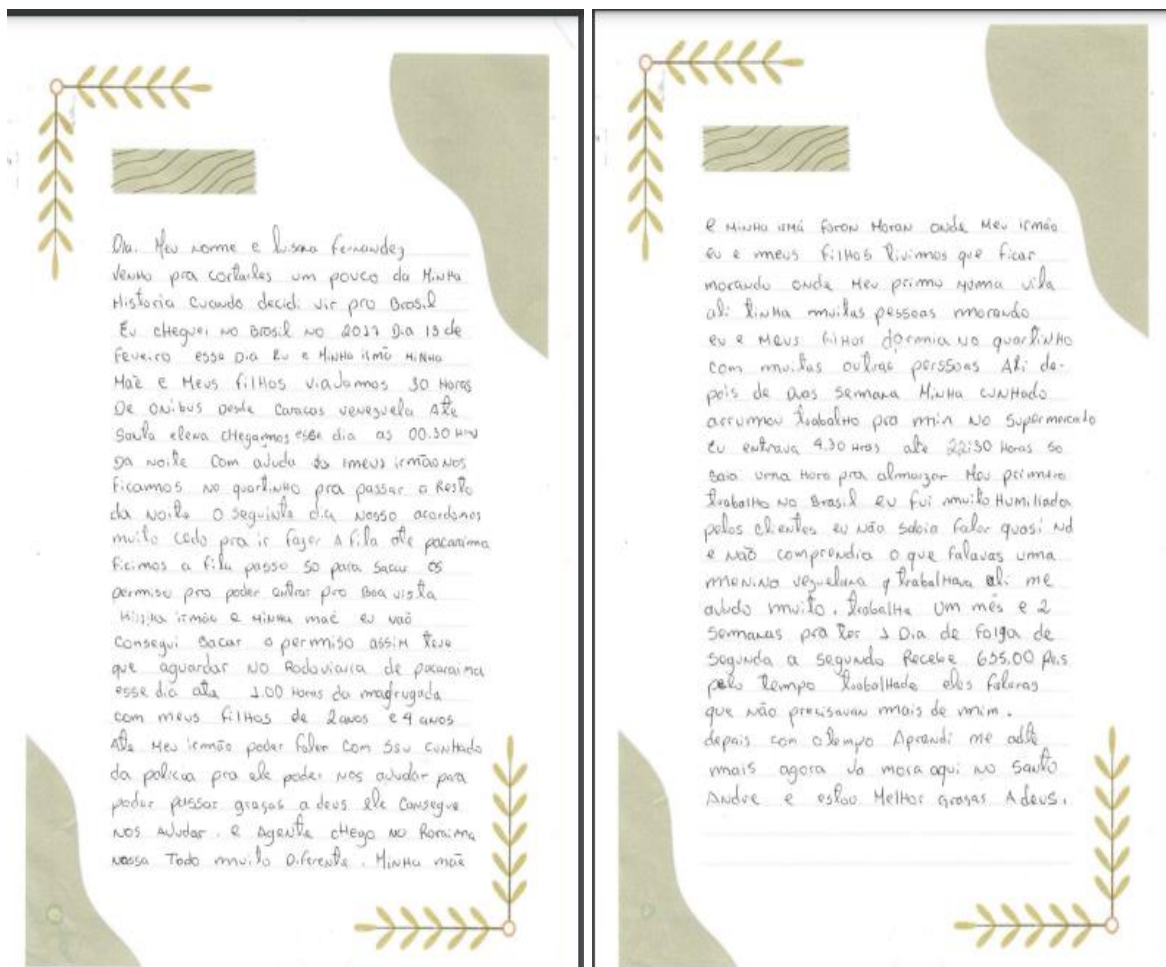 Ola. Meu norme e Lusana Fernandez
venho pra cortarles um pouco da Minha
Historia Cuando decidi vir pro Brasil
Eu cheguei no Brasil no 2017 Dia 15 de
Feveiro esse Dia Eu e Minha irmã Minha
Maẽ e Meus filhos viadamos 30 Horas
De onibus desde Caracas venezuela Ate
Santa elena chegamos esse dia as 00.30 Hras
Da Noite Com aduda do meus irmão Nos
ficamos no quartinho pra passar o Resto
da Noite O seguinte dia Nosso acordamos
muito cedo pra ir fazer A fila ate pacaraima
ficimos a fila passo so para sacar os
permiso pro poder entrar pro Boa vista
Minha irmão e Minha maẽ eu não
Consegui Sacar o permiso assim teve
que aguardar no Rodoviaria de pacaraima
esse dia ata 1.00 Horas da madrugada
com meus filhos de 2 anos e 4 anos
Ate Meu irmão poder falar Com Seu Cunhado
da policia pra ele poder Nos adudar para
poder passar graças a deus ele Consegue
Nos Adudar. e Agente chego no Roraima
Nossa Todo muito Diferente. Minha maẽ
e Minha irmã foron Moran onde Meu irmão
eu e meus filhos tivimos que ficar
morando onde Meu primo Numa vila
ali tinha muitas pessoas morando
eu e Meus filhos dormia no quartinho
com muitas outras perssoas Ali de-
pois de Duas Semana Minha cunhado
arrumou trabalho pra min no Supermercado
Eu entrava 4.30 Hras ate 22:30 Horas So
Saia uma Hora pra almorzar Meu primero
trabalho no Brasil eu fui muito Humiliada
pelos clientes eu não sabia falar quasi Nd
e não comprendia o que falavas uma
menina vezuelana q trabalhava ali me
adudo muito. trabalhe Um mês e 2
Semanas pra ter 1 Dia de folga de
Segunda a segundo Recebe 655,00 Reis
pelo tempo trabalhado eles falaras
que não precisavan mais de mim.
depais con o tempo Aprendi me adte
mais agora Ja mora aqui no Santo
Andre e estou Melhor grasas A deus.